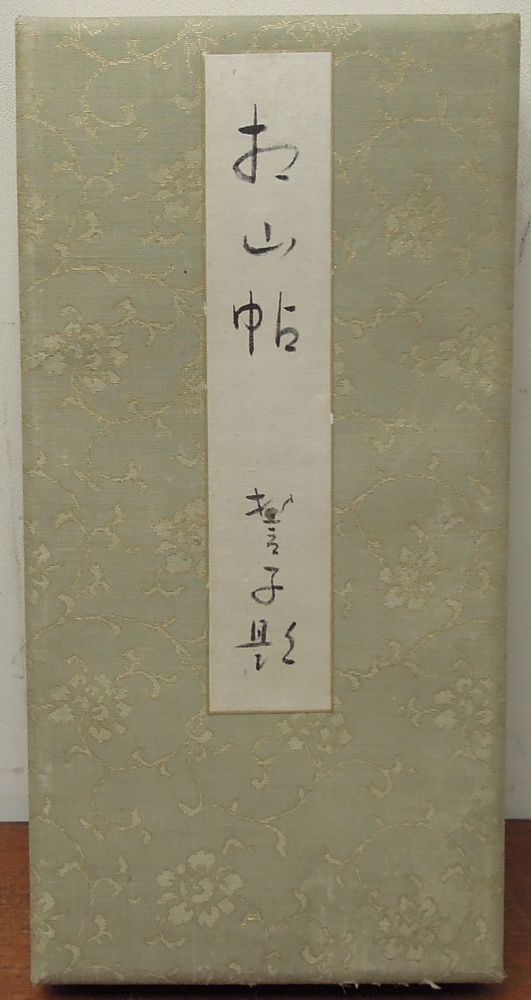 お山帖
誓子題